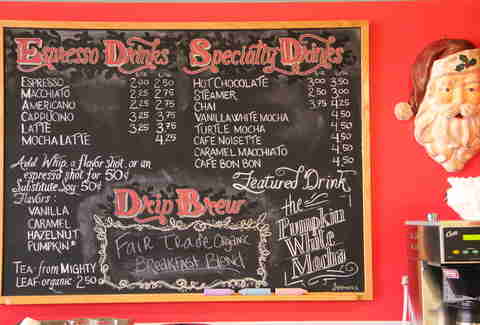 Espresso Drinks
Espresso 2.00 2.50
Macchiato 2.25 2.75
Americano 2.25 2.75
Cappucino 3.25 3.75
Latte 3.25 3.75
Mocha Latte 4.25
Add Whip, a flavor shot, or an
espresso shot for 50¢
Substitute Soy 50¢
Flavors:
Vanilla
Caramel
Hazelnut
Pumpkin*
Tea-from Mighty
Leaf-organic 2.50
Specialty Drinks
Hot Chocolate 3.00 3.50
Steamer 2.50 3.00
Chai 3.75 4.25
Vanilla White Mocha 4.50
Turtle Mocha 4.50
Cafe Noisette 4.50
Caramel Macchiato 4.50
Cafe Bon Bon 4.50
Featured Drink
the
Pumpkin
White
Mocha
Drip Brew
Fair Trade Organic
Breakfast Blend